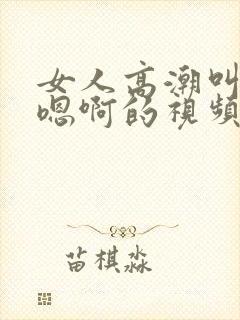 女人高潮叫
嗯啊的視頻
苗棋淼